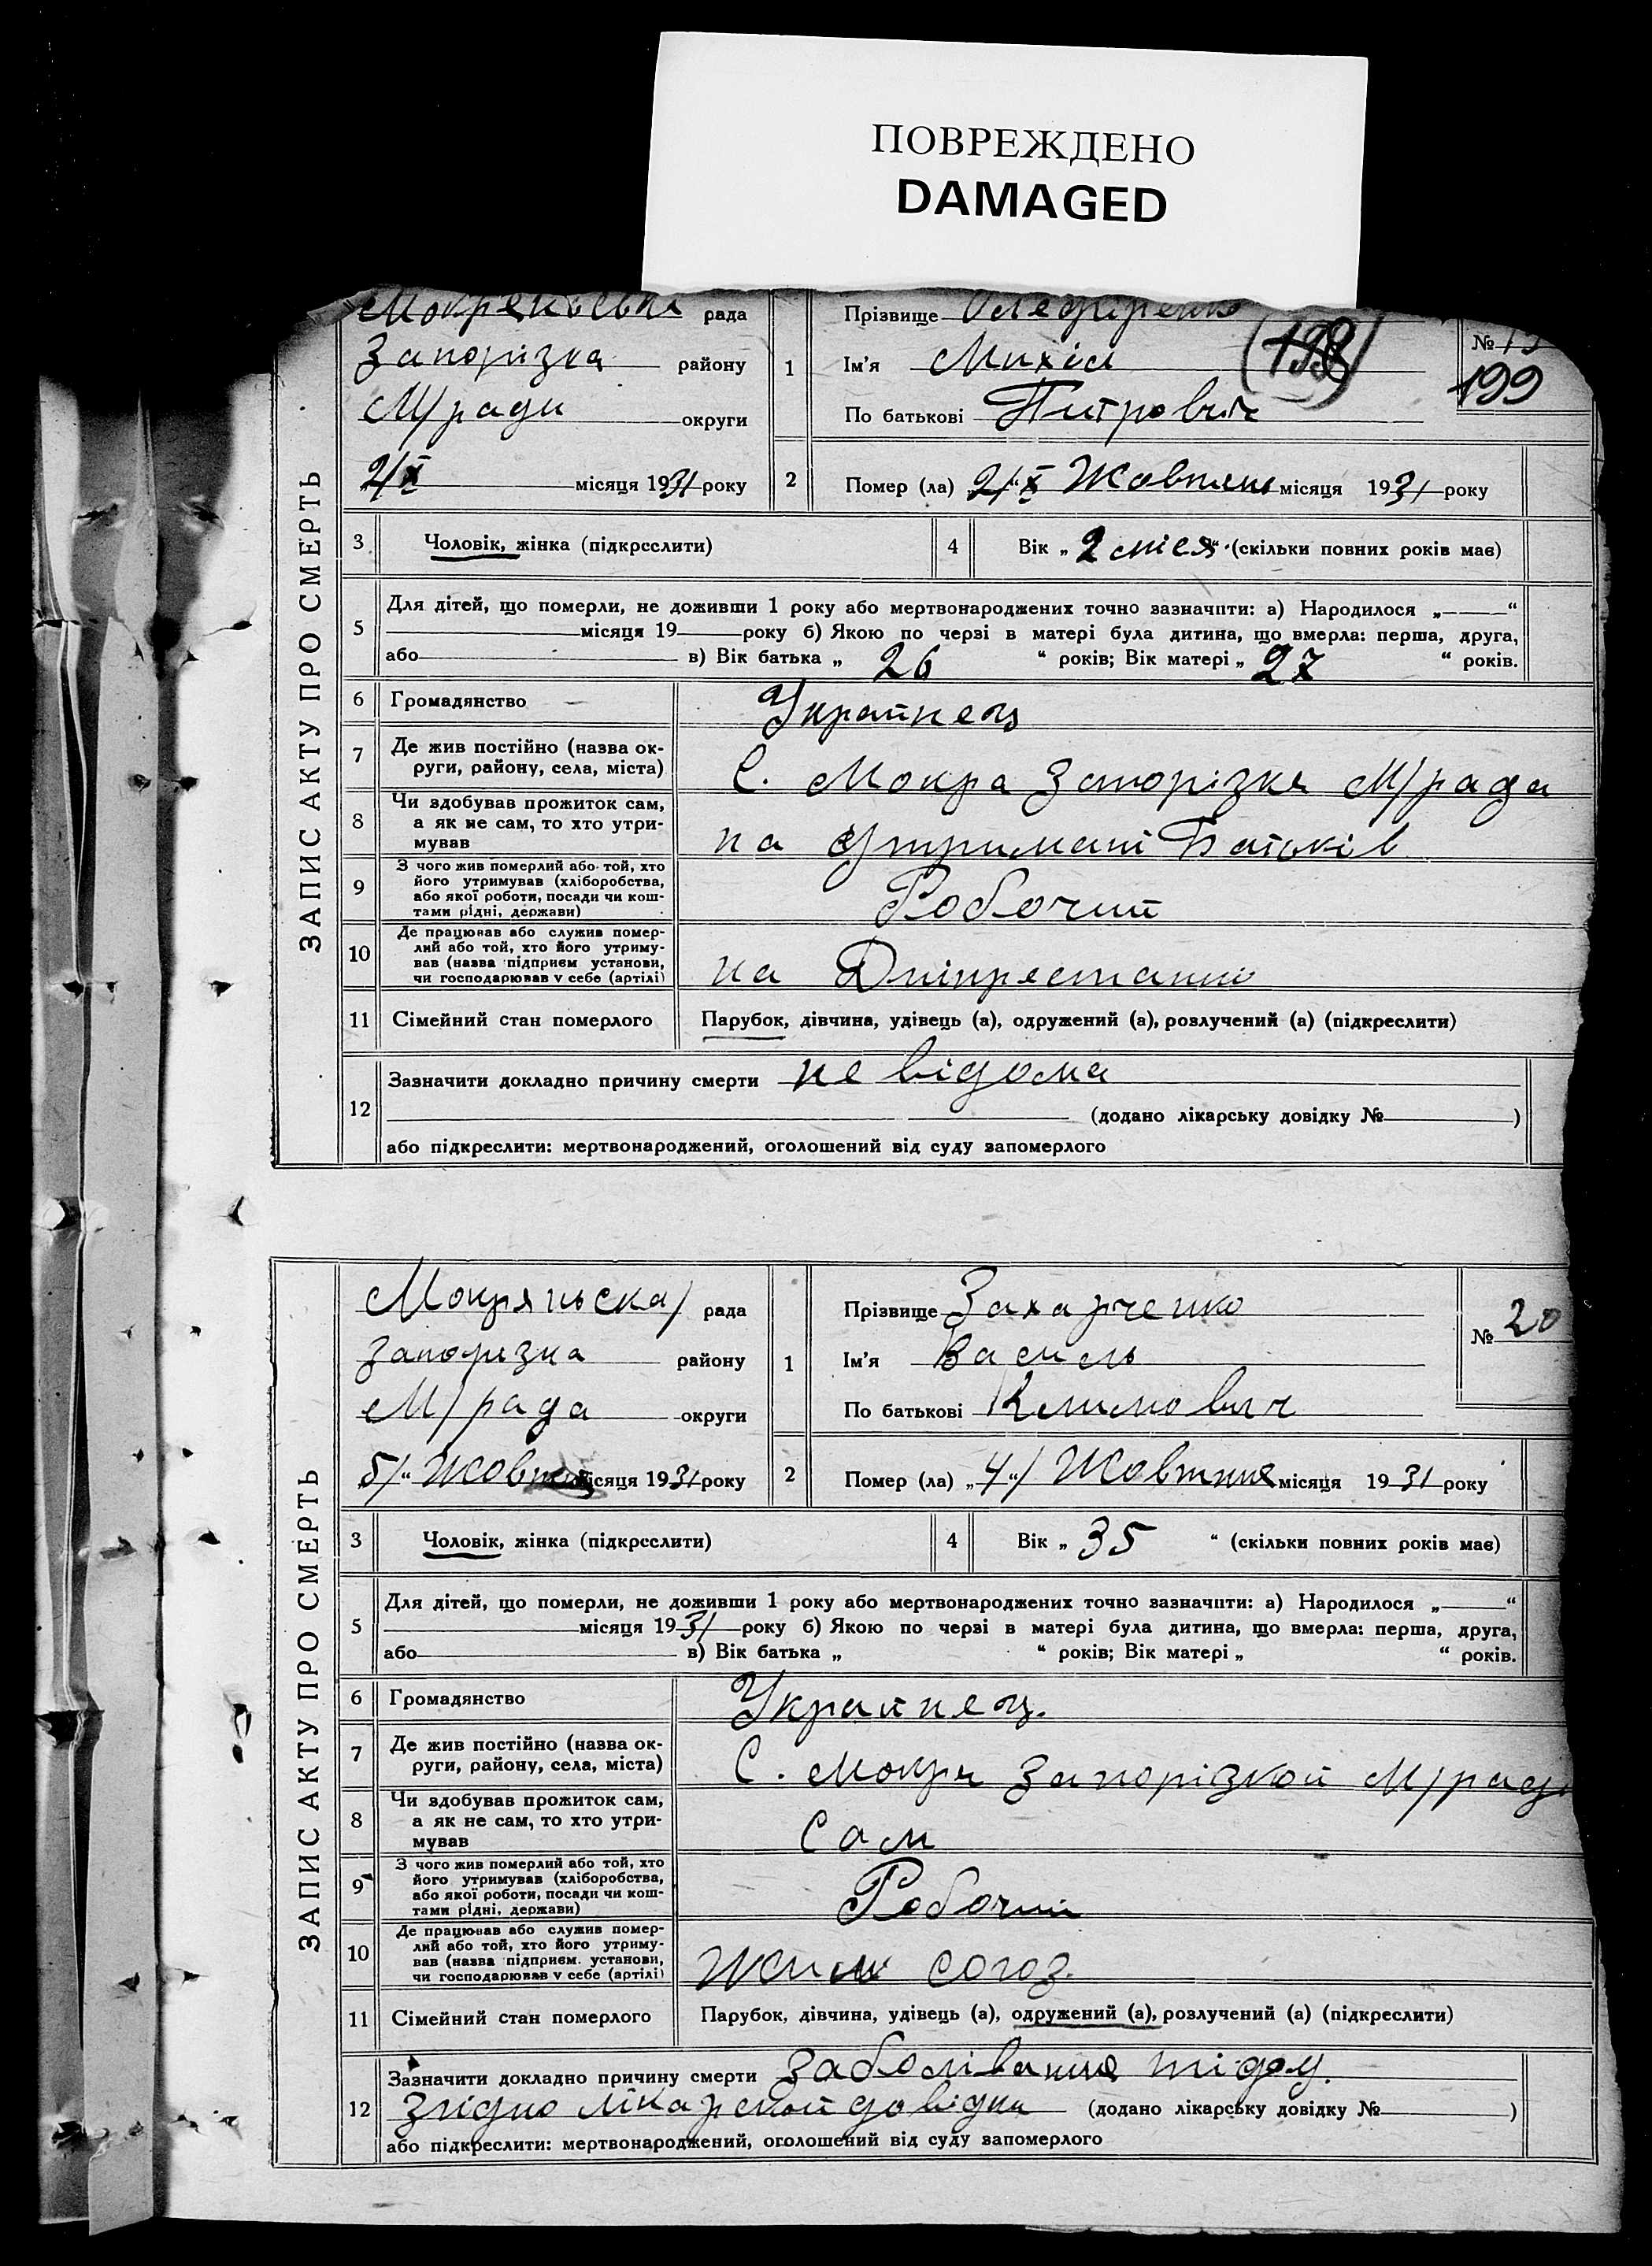 ПОВРЕЖДЕНО
DAMAGED
ЗАПИС АКТУ ПРО СМЕРТЬ
рада
Запорізка району
М/ради округи
2/X місяця 1931 року
1 Прізвище Олефіренко
Ім'я Михіл
По батькові Питрович
(198)
№ 19
199
2 Помер (ла) „2/“ X Жовтень місяця 1931 року
3 Чоловік, жінка (підкреслити)
4 Вік „2 міся“ (скільки повних років має)
5 Для дітей, що померли, не доживши 1 року або мертвонароджених точно зазначити: а) Народилося „ “
місяця 19 року б) Якою по черзі в матері була дитина, що вмерла: перша, друга,
або в) Вік батька „ 26 “ років; Вік матері „ 27 “ років.
6 Громадянство Украйнец
7 Де жив постійно (назва округи, району, села, міста) С. Мокра Запорізка М/рада
8 Чи здобував прожиток сам, а як не сам, то хто утримував на утримані Батьків
9 З чого жив померлий або той, хто його утримував (хліборобства, або якої роботи, посади чи коштами рідні, держави) Робочий
10 Де працював або служив померлий або той, хто його утримував (назва підприєм установи, чи господарював у себе (артілі) на
11 Сімейний стан померлого Парубок, дівчина, удівець (а), одружений (а), розлучений (а) (підкреслити)
12 Зазначити докладно причину смерти не відома
(додано лікарську довідку № )
або підкреслити: мертвонароджений, оголошений від суду запомерлого
ЗАПИС АКТУ ПРО СМЕРТЬ
Мокряньска/ рада
Запорізка району
М/рада округи
5/“ Жовтня місяця 1931 року
1 Прізвище Захарченко
Ім'я Василь
По батькові Климович
№ 20
2 Помер (ла) „4“/ Жовтня місяця 1931 року
3 Чоловік, жінка (підкреслити)
4 Вік „ 35 “ (скільки повних років має)
5 Для дітей, що померли, не доживши 1 року або мертвонароджених точно зазначити: а) Народилося „ “
місяця 1931 року б) Якою по черзі в матері була дитина, що вмерла: перша, друга,
або в) Вік батька „ “ років; Вік матері „ “ років.
6 Громадянство Украйнец.
7 Де жив постійно (назва округи, району, села, міста) С. Мокра Запорізкой М/рад
8 Чи здобував прожиток сам, а як не сам, то хто утримував Сам
9 З чого жив померлий або той, хто його утримував (хліборобства, або якої роботи, посади чи коштами рідні, держави) Робочий
10 Де працював або служив померлий або той, хто його утримував (назва підприєм. установи, чи господарював у себе (артілі) Жил союз.
11 Сімейний стан померлого Парубок, дівчина, удівець (а), одружений (а), розлучений (а) (підкреслити)
12 Зазначити докладно причину смерти Заболівання
Згідно лікарской довідки (додано лікарську довідку № )
або підкреслити: мертвонароджений, оголошений від суду запомерлого